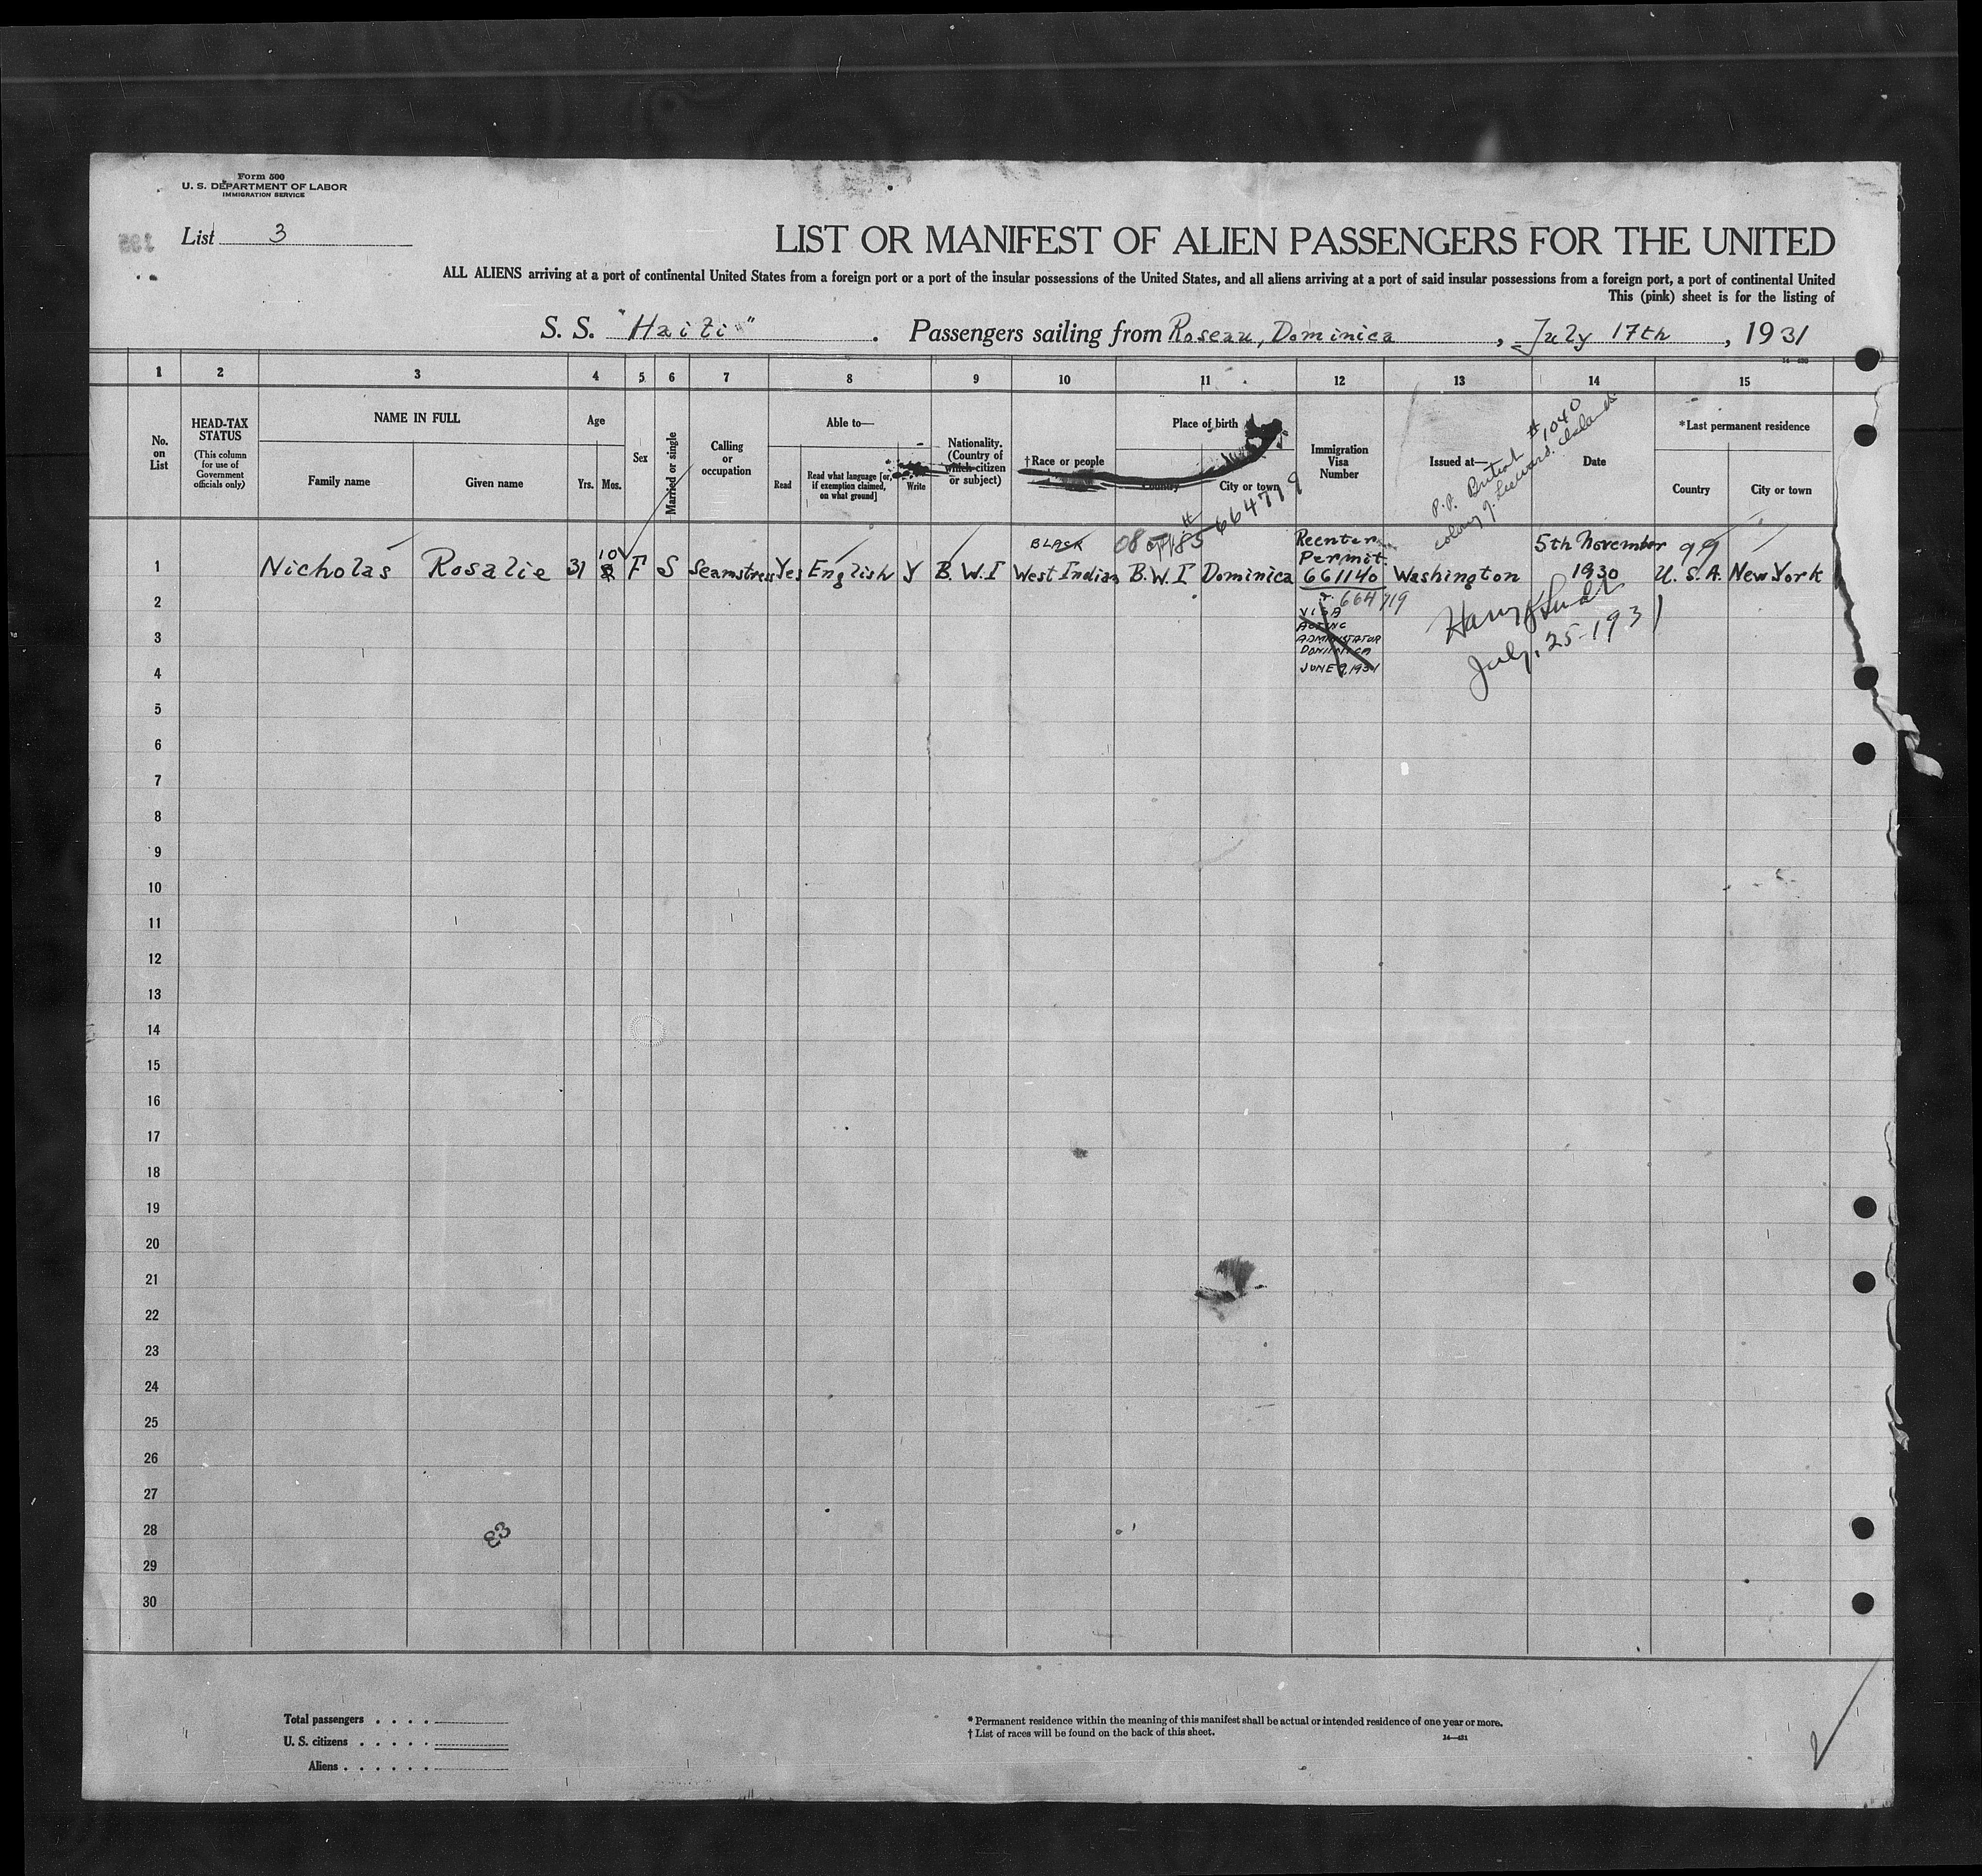 Form 500
U. S. DEPARTMENT OF LABOR
IMMIGRATION SERVICE
List 3
LIST OR MANIFEST OF ALIEN PASSENGERS FOR THE UNITED
ALL ALIENS arriving at a port of continental United States from a foreign port or a port of the insular possessions of the United States, and all aliens arriving at a port of said insular possessions from a foreign port, a port of continental United
This (pink) sheet is for the listing of
S. S. "Haiti". Passengers sailing from Roseau, Dominica, July 17th, 1931
1 2 3 4 5 6 7 8 9 10 11 12 13 14 15
No. on List
HEAD-TAX STATUS
(This column for use of Government officials only)
NAME IN FULL
Family name Given name
Age
Yrs. Mos.
Sex
Married or single
Calling or occupation
Able to—
Read
Read what language [or, if exemption claimed, on what ground]
Write
Nationality. (Country of which citizen or subject)
†Race or people
Place of birth
Country City or town
Immigration Visa Number
Issued at—
Date
*Last permanent residence
Country City or town
P.P. British #1040
colony of Leeward Islands
664719
BLACK
1 Nicholas Rosalie 31 10 F S Seamstress Yes English Y B.W.I West Indian B.W.I Dominica Reenter Permit 661140 Washington 5th November 1930 U.S.A. New York
664719
VISA
ACTING
ADMINISTATOR
DOMINICA
JUNE 9, 1931
July, 25-1931
2
3
4
5
6
7
8
9
10
11
12
13
14
15
16
17
18
19
20
21
22
23
24
25
26
27
28
29
30
Total passengers . . . .
U. S. citizens . . . . .
Aliens . . . . . .
* Permanent residence within the meaning of this manifest shall be actual or intended residence of one year or more.
† List of races will be found on the back of this sheet.
14—431